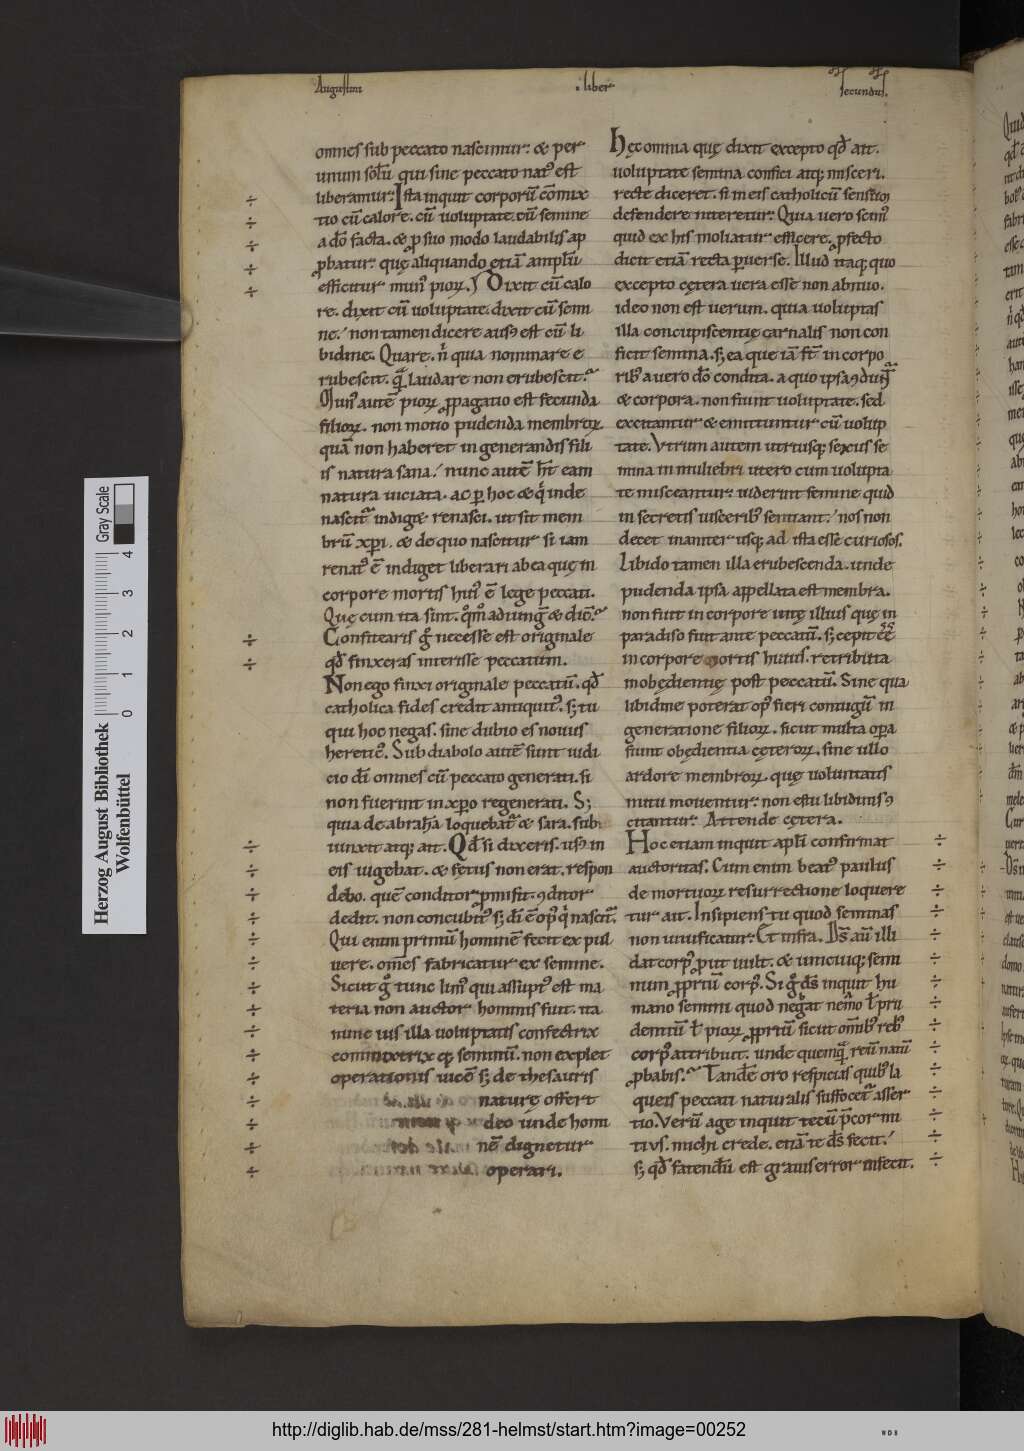 Augustini
. liber
secundus.
omnes sub peccato nascimur: & per
unum solū qui sine peccato nat᾽ est
liberamur: Ista inquit corporū cōmix
tio cū calore. cū uoluptate. cū semine
a dō facta. & ꝓ suo modo laudabilis ap
ꝓbatur. quę aliquando etiā amplū
efficitur mun᾽ pioꝝ. Dixit cū calo
re. dixit cū uoluptate. dixit cū semi
ne. non tamen dicere ausꝰ est cū li
bidine. Quare. n̓ quia nominare e
rubescit. quā laudare non erubescit.
Mun᾽ autē pioꝝ ꝓpagatio est fecunda
filioꝝ. non motio pudenda membroꝝ
quā non haberet in generandis fili
is natura sana. nunc autē hꝉt eam
natura uiciata. ac ꝑ hoc & qͥ inde
nascit᾽ indiget renasci. ut sit mem
brū xp̄i. & de quo nascitur si iam
renat᾽ ē indiget liberari ab ea quę in
corpore mortis hui᾽ ē lege peccati.
Quę cum ita sint. qͦmͦ adiungͭ & dicͭ.
Confitearis gͦ necesse est originale
qd̄ finxeras interisse peccatum.
Non ego finxi originale peccatū. qd̄
catholica fides credit antiquit᾽. sꝫ tu
qui hoc negas. sine dubio es nouus
heretic᾽. Sub diabolo autē sunt iudi
cio dī omnes cū peccato generati. si
non fuerint in xp̄o regenerati. Sꝫ
quia de abrahā loquebat᾽ & sara. sub
iunxit atqꝫ ait. Qd̄ si dixeris. usꝰ in
eis uigebat. & fetus non erat. respon
debo. quē conditor ꝓmisit. ꝯditor
dedit. non concubit᾽ sꝫ dī ē op᾽ qͥ nascit᾽.
Qui enim primū hominē fecit ex pul
uere. om̄es fabricatur ex semine.
Sicut gͦ tunc lim᾽ qui assupt᾽ est ma
teria non auctor hominis fuit. ita
nunc uis illa uoluptatis confectrix
commixtrix qꝫ seminū. non explet
operationis uicē sꝫ de thesauris
naturę offert
deo unde homi
nē dignetur
operari.
Hęc omnia quę dixit excepto qd̄ ait.
uoluptate semina confici atqꝫ misceri.
recte diceret. si in eis catholicū sensum
defendere niteretur. Quia uero scim᾽
quid ex his moliatur efficere. ꝓfecto
dicit etiā recta ꝑuerse. Illud itaqꝫ quo
excepto cetera uera esse non abnuo.
ideo non est uerum. quia uoluptas
illa concupiscentię carnalis non con
ficit semina. sꝫ ea que iā st̄ in corpo
ribꝰ a uero dō condita. a quo ipsa ꝯdunt᾽
& corpora. non fiunt uoluptate. sed
excitantur & emittuntur cū uolup
tate. Vtrum autem utriusqꝫ sexus se
mina in muliebri utero cum uolupta
te misceantur. uiderint femine quid
in secretis uisceribꝰ sentiant. nos non
decet inaniter usqꝫ ad ista esse curiosos.
Libido tamen illa erubescenda. unde
pudenda ipsa appellata est membra.
non fuit in corpore uitę illius quę in
paradiso fuit ante peccatū. sꝫ cepit eē
in corpore mortis huius. retributa
inobędientię post peccatū. Sine qua
libidine poterat op᾽ fieri coniugū in
generatione filioꝝ. sicut multa oꝑa
fiunt obędientia ceteroꝝ. sine ullo
ardore membroꝝ. quę uoluntatis
nutu mouentur. non estu libidinis ꝯ
citantur. Attende cetera.
Hoc etiam inquit apłi confirmat
auctoritas. Cum enim beat᾽ paulus
de mortuoꝝ resurrectione loquere
tur ait. Insipiens tu quod seminas
non uiuificatur. Et infra. Dš aū illi
dat corp᾽ ꝓut uult. & unicuiqꝫ semi
num ꝓpriū corp᾽. Si gͦ dš inquit hu
mano semini quod negat nemo ł pru
dentiū ł pioꝝ ꝓpriū sicut omībꝰ rebꝰ
corp᾽ attribuit. unde quemquā reū natū
ꝓbabis. Tandē oro respicias quibꝰ la
queis peccati naturalis suffocet᾽ asser
tio. Verū age inquit tecū p̄cor mi
tiꝰ. michi crede. etiā te dš fecit.
sꝫ qd̄ fatendū est grauis error infecit.
Gray Scale
0 1 2 3 4
Herzog August Bibliothek
Wolfenbüttel
http://diglib.hab.de/mss/281-helmst/start.htm?image=00252